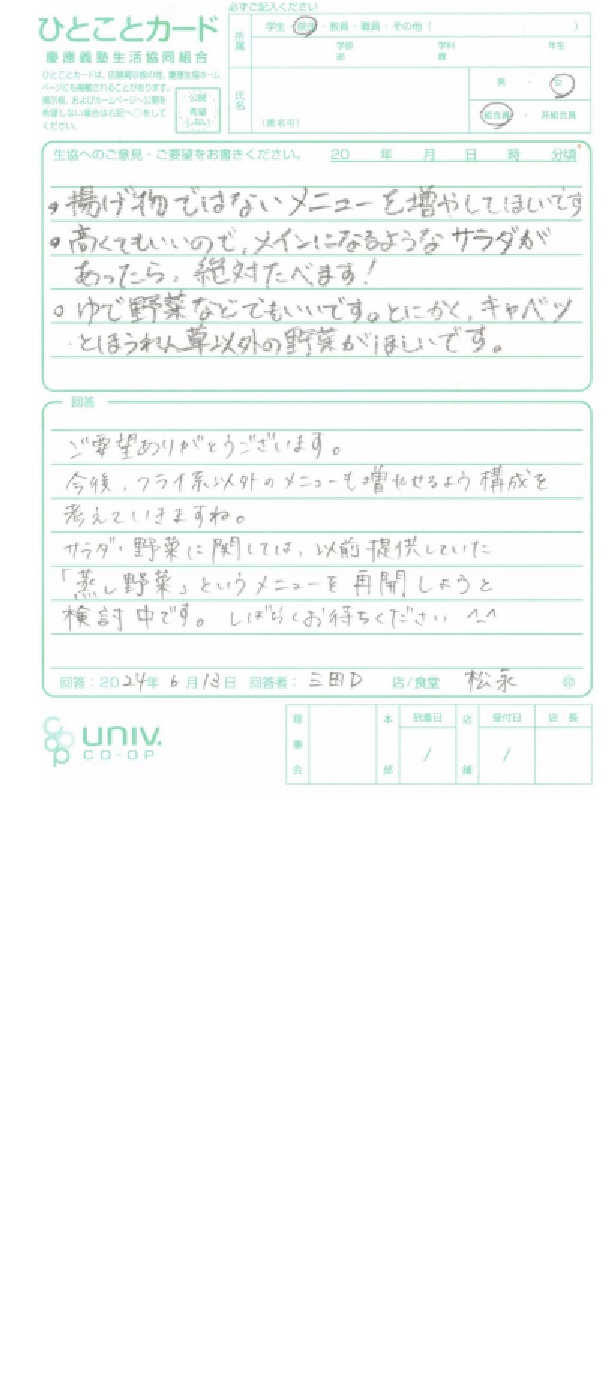 ひとことカード
慶應義塾生活協同組合
ひとことカードは、店頭掲示板の他、慶應生協ホーム
ページにも掲載されることがあります。
掲示板、およびホームページへ公開を
希望しない場合は右記へ○をして
ください。
公開
希望
しない
必ずご記入ください
所属
学生・院生・教員・職員・その他（ ）
学部 学科 年生
部 課
氏名
（匿名可）
男 ・ 女
組合員 ・ 非組合員
生協へのご意見・ご要望をお書きください。 20 年 月 日 時 分頃
○ 揚げ物ではないメニューを増やしてほしいです
○ 高くてもいいので、メインになるようなサラダが
あったら、絶対たべます!
○ ゆで野菜などでもいいです。とにかく、キャベツ
とほうれん草以外の野菜がほしいです。
回答
ご要望ありがとうございます。
今後、フライ系以外のメニューも増やせるよう構成を
考えていきますね。
サラダ・野菜に関しては、以前提供していた
「蒸し野菜」というメニューを再開しようと
検討中です。しばらくお待ちください ^-^
回答：2024年 6月13日 回答者：三田D 店/食堂 松永 ㊞
univ.
CO-OP
理事会
本部
到着日
/
店舗
受付日
/
店長